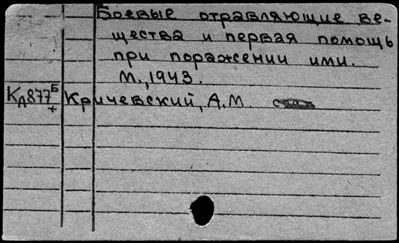 Боевые отравляющие ве-
щества и первая помощь
при поражении ими.
М., 1943.
Кд877Б
+
Кричевский, А.М.